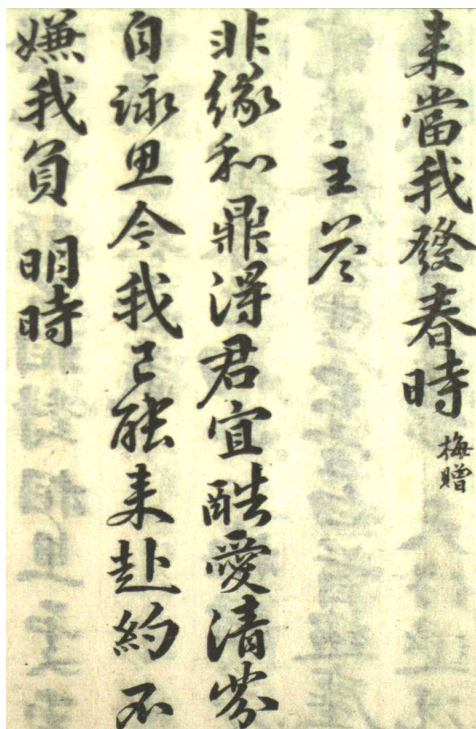 来當我發春時 梅贈
主答
非緣和鼎得君宜酷愛清芬
自詠思今我已能来赴約不
嫌我負 明時